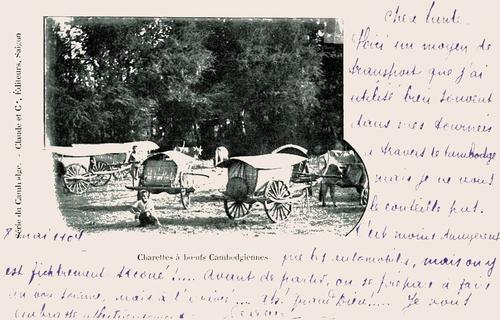 Série du Cambodge - Claude et Cie, Éditeurs, Saigon
Chère
Voici un moyen de
transport que j'ai
utilisé bien souvent
dans mes tournées
à travers le Cambodge
mais je ne vous
le conseille pas.
C'est moins dangereux
Charettes à bœufs Cambodgiennes
que les automobiles, mais on y
est fichtrement secoué !.... Avant de partir, on se prépare à faire
un bon somme, mais à l'arrivée ... ah! grand Dieu!..... Je vous
embrasse affectueusement